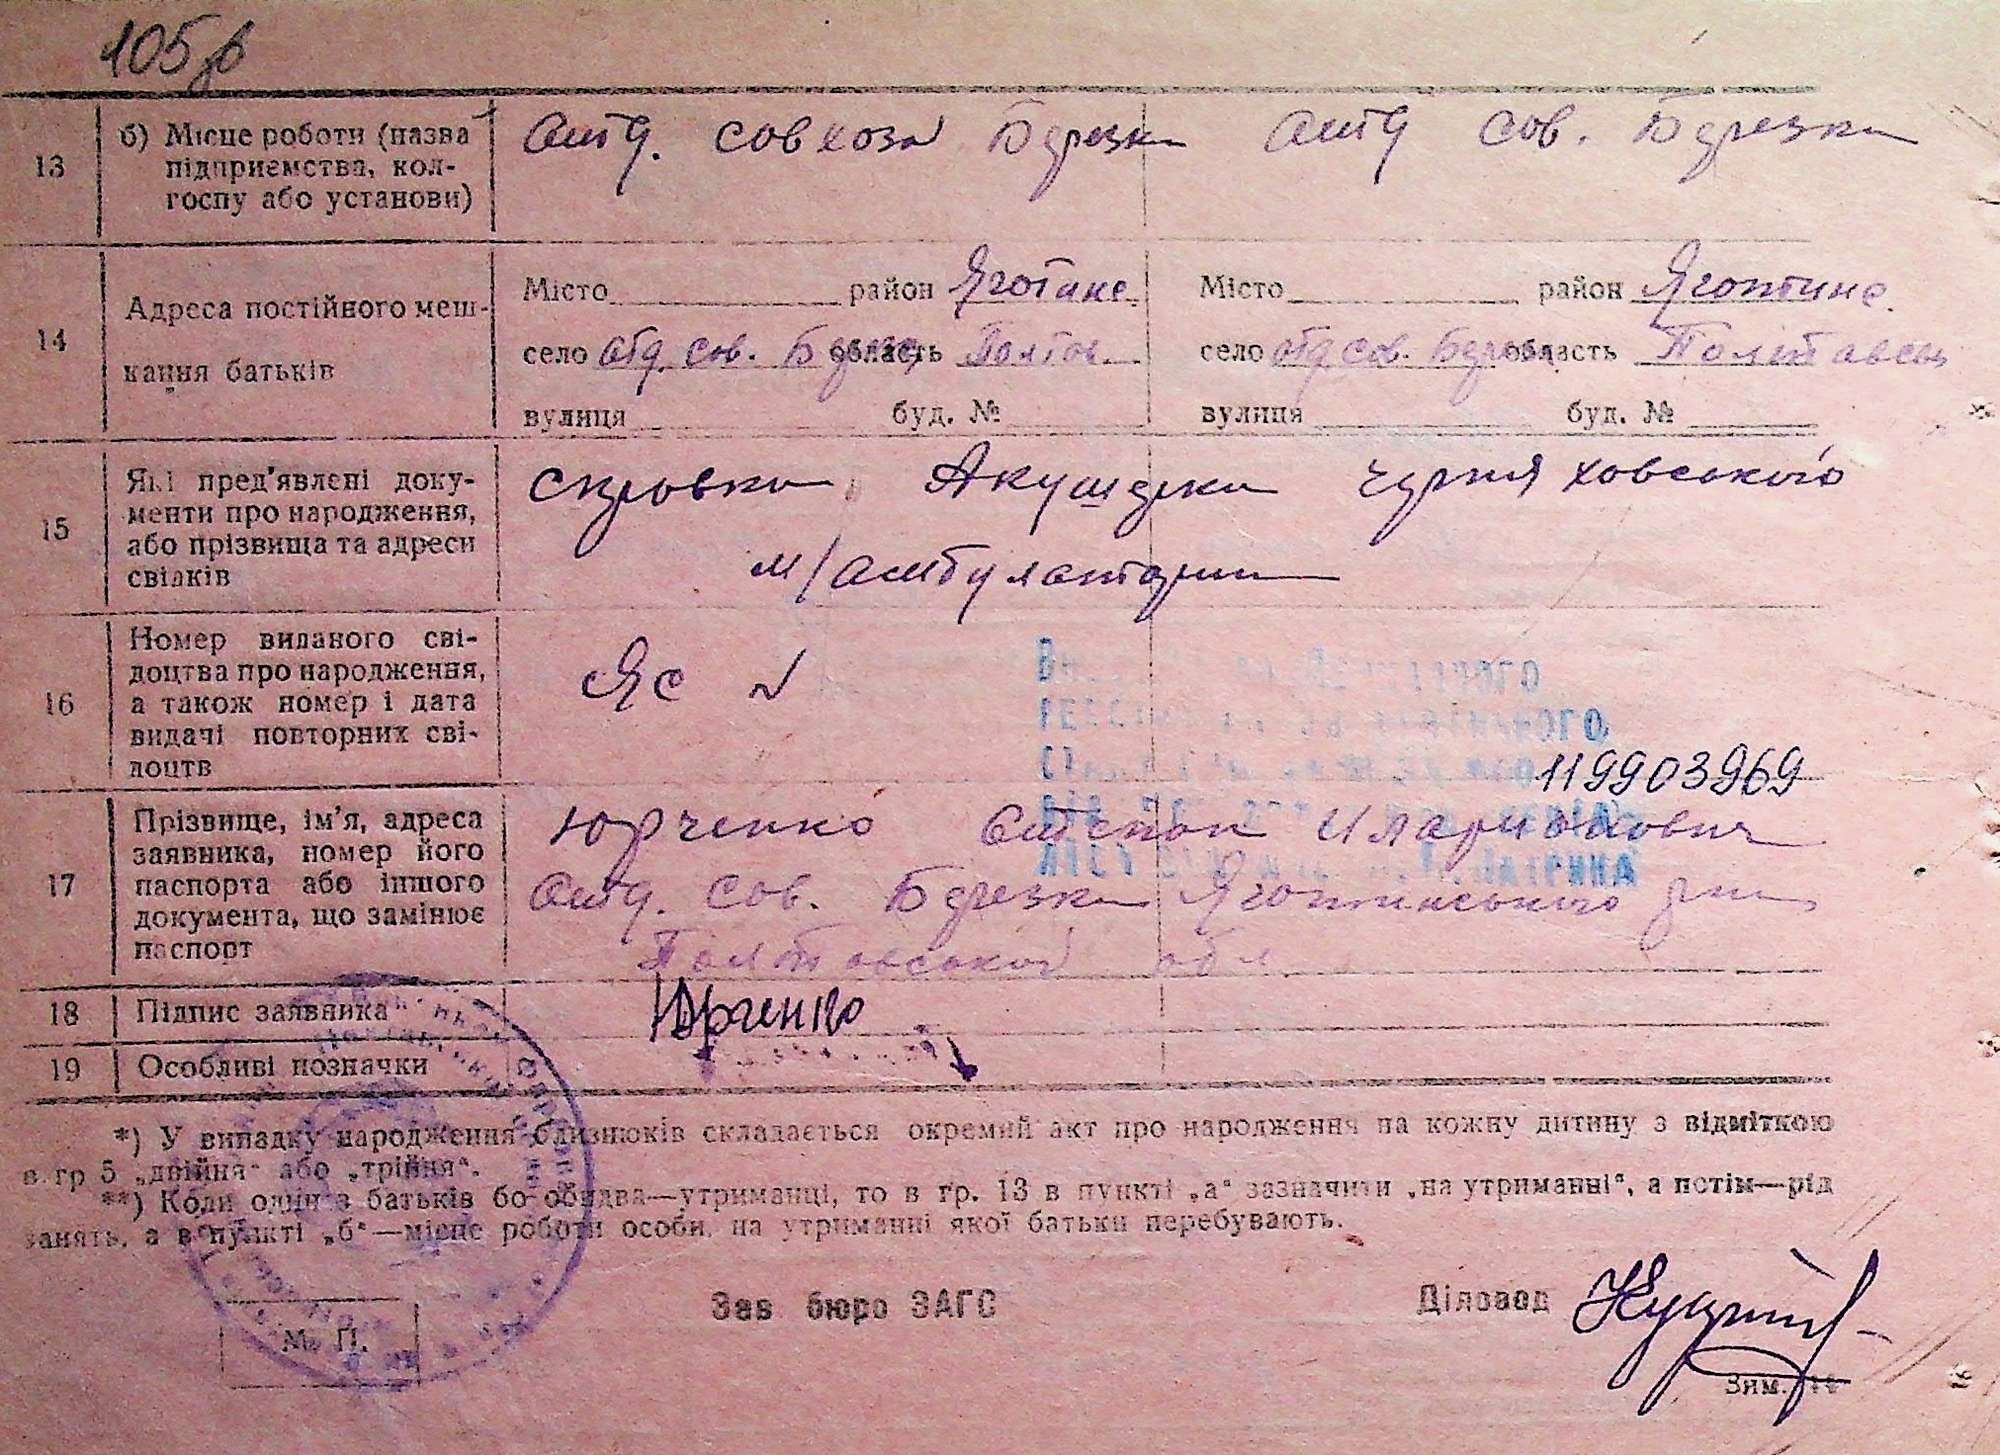 105
13 б) Місце роботи (назва підприємства, колгоспу або установи)
Отд. совхоза Березки
Отд сов. Березки
14 Адреса постійного мешкання батьків
Місто район Яготине
село отд. сов. Березки область Полтов
вулиця буд. №
Місто район Яготине
село отд сов. Березки область Полтавськ
вулиця буд. №
15 Які пред'явлені документи про народження, або прізвища та адреси свідків
Справка Акушерки Черняховського
м/амбулатории
16 Номер виданого свідоцтва про народження, а також номер і дата видачі повторних свідоцтв
ЯС №
119903969
17 Прізвище, ім'я, адреса заявника, номер його паспорта або іншого документа, що замінює паспорт
Юрченко Степан Иларионович
Отд. сов. Березки Яготинського рна
Полтовськой обл
18 Підпис заявника
Юрченко
19 Особливі позначки
*) У випадку народження близнюків складається окремий акт про народження на кожну дитину з відміткою
в гр 5 „двійня“ або „трійня“.
**) Коли один з батьків бо обидва—утриманці, то в гр. 13 в пункті „а“ зазначити „на утриманні“, а потім—рід
занять, а в пункті „б“—місце роботи особи, на утриманні якої батьки перебувають.
Зав бюро ЗАГС
Діловод
М. П.
Зам.